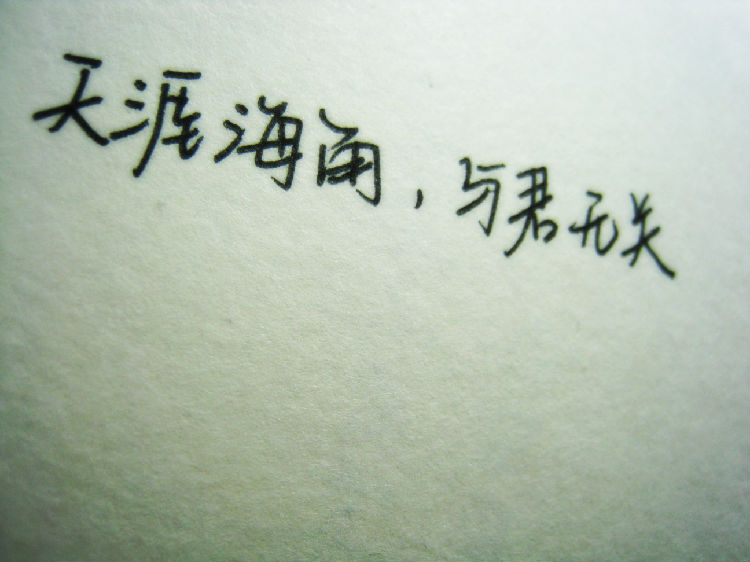 天涯海角，与君无关